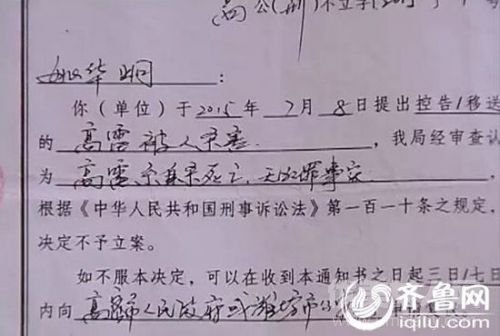 公(刑)不立字
华
你（单位）于 2015 年 7 月 8 日提出控告/移送
的 高雷被人杀害 ，我局经审查认
为 高雷系 死亡,无犯罪事实
根据《中华人民共和国刑事诉讼法》第一百一十条之规定，
决定不予立案。
如不服本决定，可以在收到本通知书之日起三日/七日
内向 高密市人民政府或潍坊市公
齐鲁网
iqilu.com